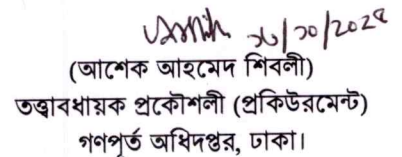 (আশেক আহমেদ শিবলী)
তত্ত্বাবধায়ক প্রকৌশলী (প্রকিউরমেন্ট)
গণপূর্ত অধিদপ্তর, ঢাকা।